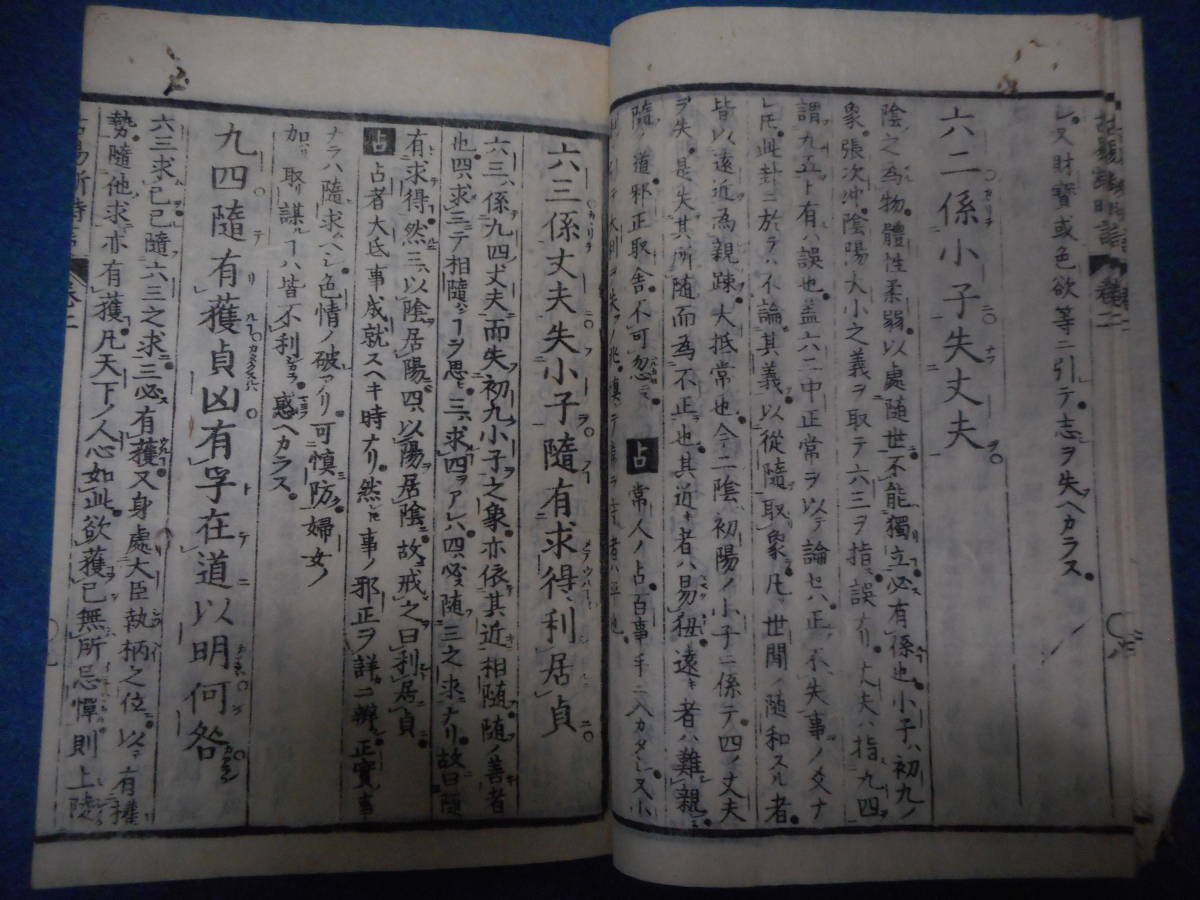 レ又財寶或色欲等ニ引テ志ヲ失ヘカラス
六二係小子失丈夫
陰之為物體性柔弱以處随世不能獨立必有係也小子ハ初九ノ
象張次冲陰陽大小之義ヲ取テ六三ヲ指誤ナリ丈夫ハ指九四
謂九五ト有ハ誤也蓋六二中正常ヲ以テ論セハ正不失事ノ爻ナ
レ𪜈此卦ニ於テハ不論其義以從隨取象凡世間ノ隨和スル者
皆以遠近為親踈大抵常也今二陰初陽ノ小子ニ係テ四ノ丈夫
ヲ失是失其所随而為不正也其近キ者ハ易狃遠キ者ハ難親
隨ノ道邪正取舎不可忽 占 常人ノ占百事手ニ入カタシ又小
六三係丈夫失小子隨有求得利居貞
六三係九四丈夫而失初九小子之象亦依其近相随随ノ善者
也四求三テ相隨ハヿヲ思三求四ヲアレハ四必随三之求ナリ故曰隨
有求得然三以陰居陽四以陽居陰故戒之曰利居貞
占 占者大底事成就スヘキ時ナリ然𪜈事ノ邪正ヲ詳ニ辨正實事
ナラハ隨求ヘシ色情ノ破アリ可慎防婦女ノ
加リ取リ謀ルヿハ皆不利惑ヘカラス
九四隨有獲貞凶有孚在道以明何咎
六三求己己隨六三之求三必有獲又身處大臣執柄之位以有權
勢隨他求亦有獲凡天下ノ人心如此欲獲己無所忌憚則上陵